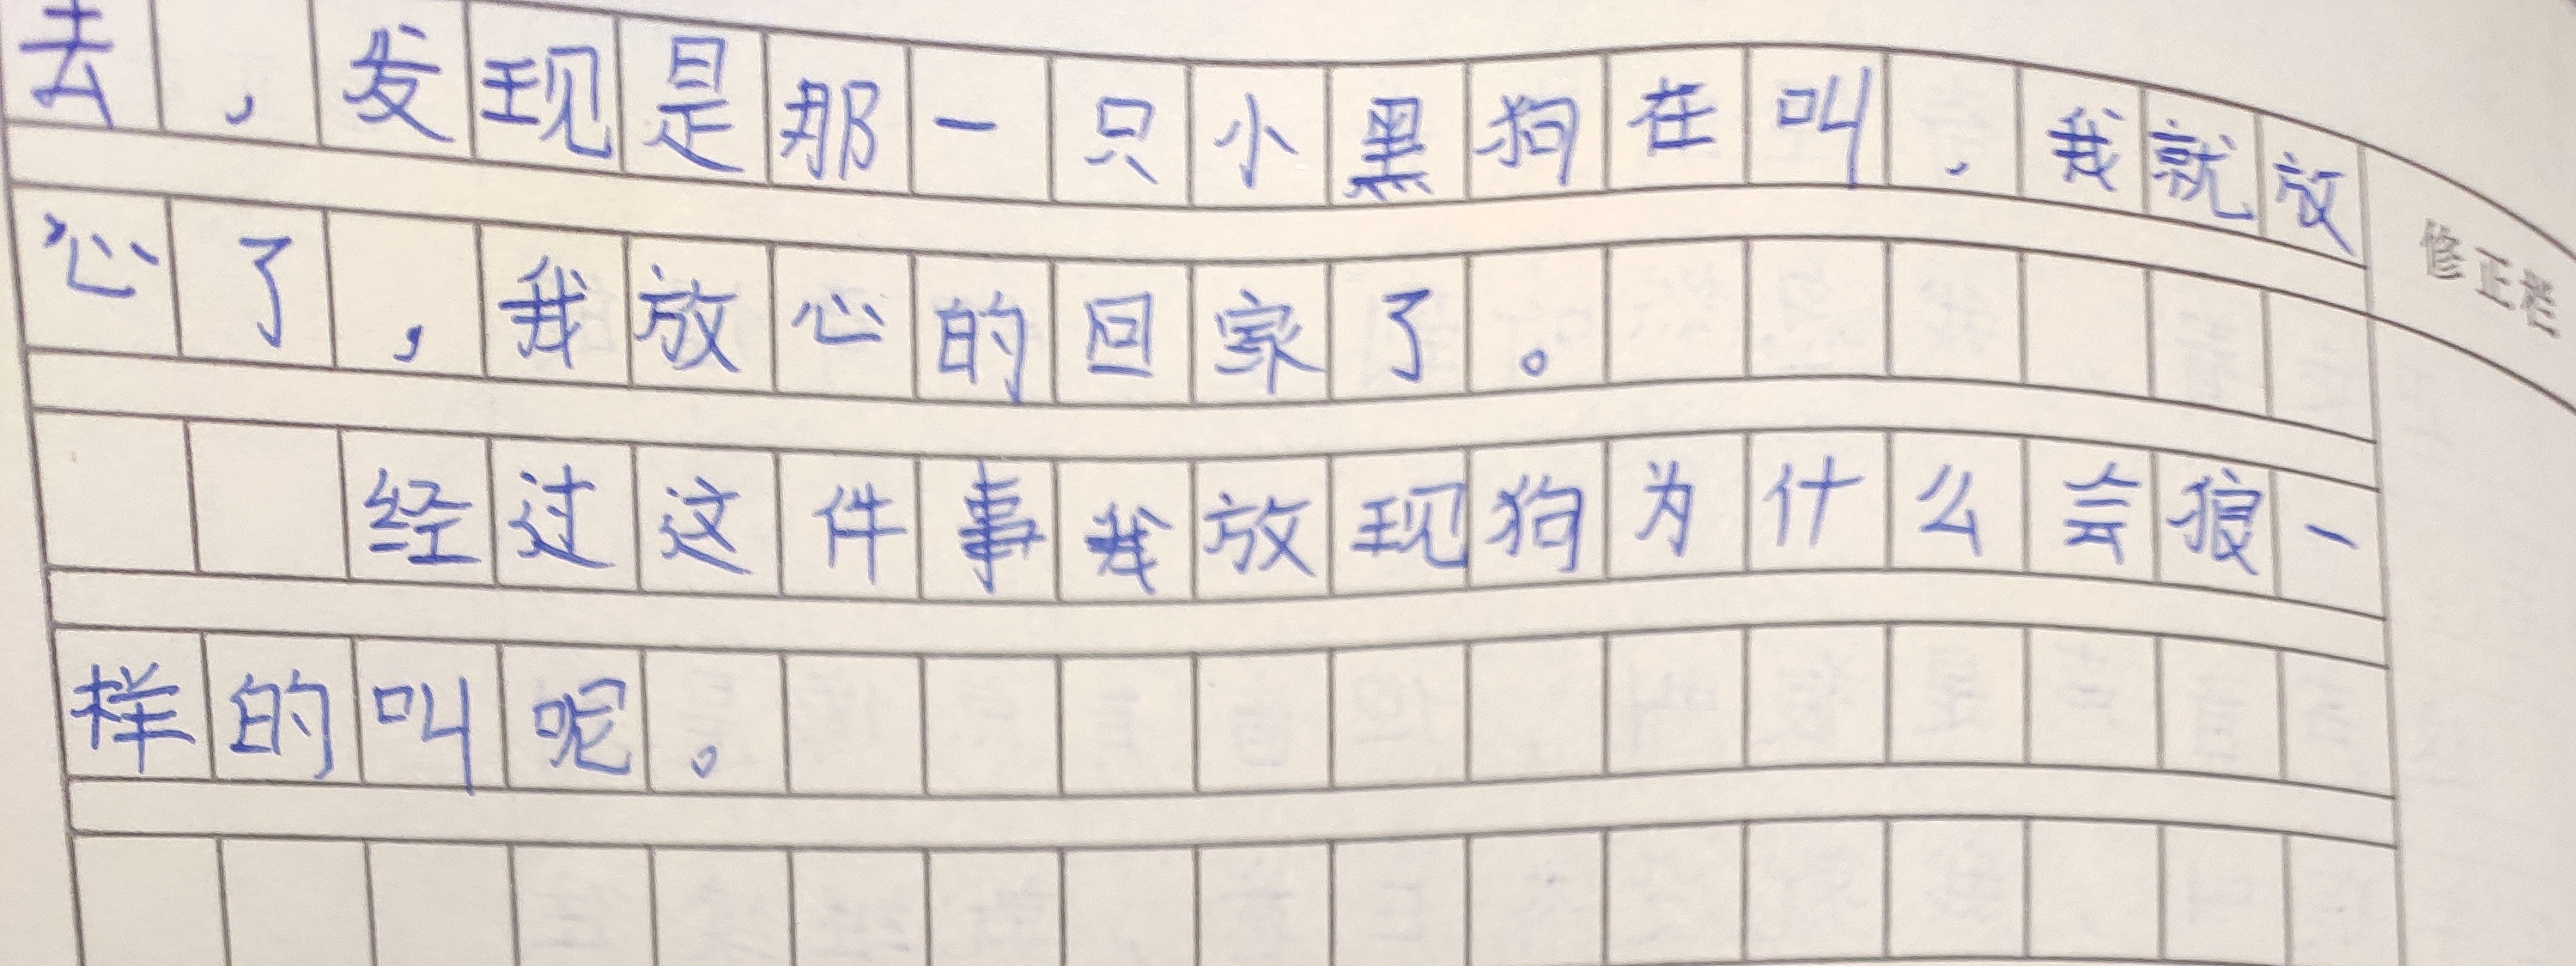 去，发现是那一只小黑狗在叫，我就放
心了，我放心的回家了。
修正栏
经过这件事我放现狗为什么会狼一
样的叫呢。